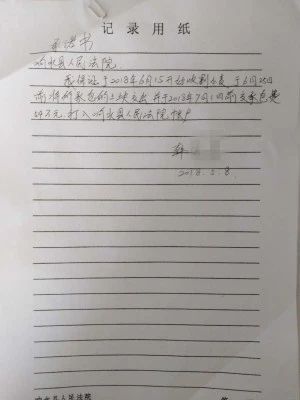 记录用纸
承诺书
响水县人民法院:
我保证于2018年6月15开始收割小麦,于6月25日
前将所承包的土地交出并于2018年7月1日前交承包费
24万元,打入响水县人民法院帐户
韩
2018.5.8
响水县人民法院
第